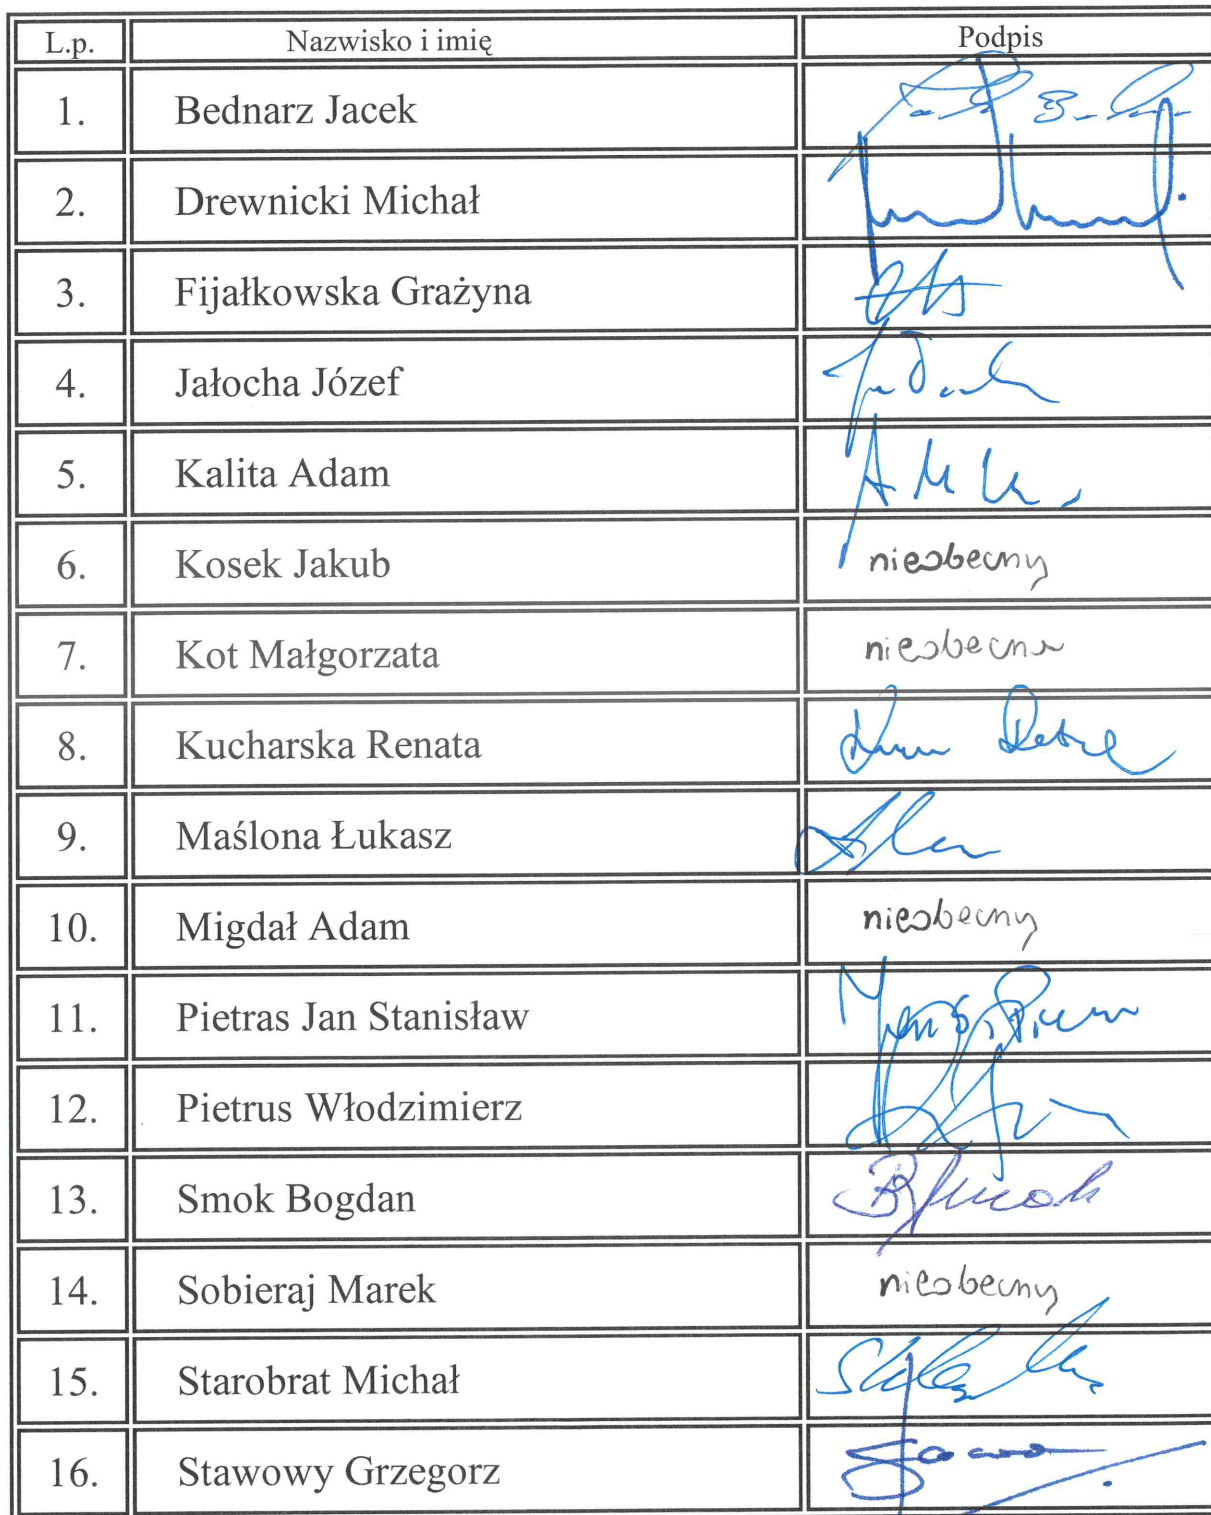 L.p. Nazwisko i imię Podpis
1. Bednarz Jacek
2. Drewnicki Michał
3. Fijałkowska Grażyna
4. Jałocha Józef
5. Kalita Adam
6. Kosek Jakub nieobecny
7. Kot Małgorzata nieobecna
8. Kucharska Renata
9. Maślona Łukasz
10. Migdał Adam nieobecny
11. Pietras Jan Stanisław
12. Pietrus Włodzimierz
13. Smok Bogdan B Smok
14. Sobieraj Marek nieobecny
15. Starobrat Michał
16. Stawowy Grzegorz